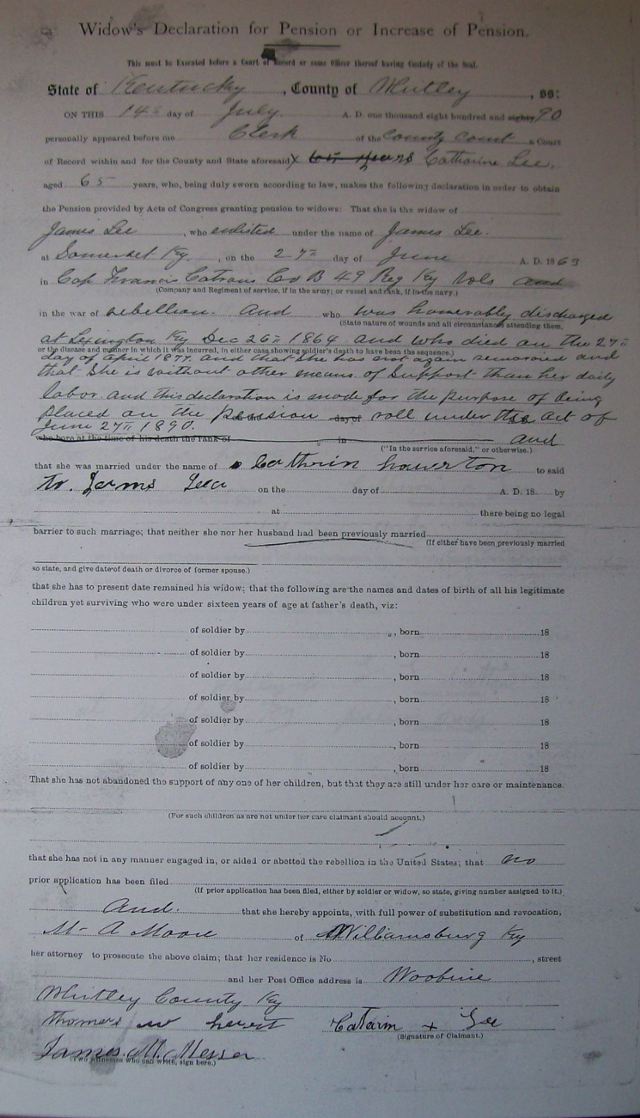 Widow's Declaration for Pension or Increase of Pension.
This must be Executed before a Court of Record or some Officer thereof having Custody of the Seal.
State of Kentucky, County of Whitley, ss:
ON THIS 14th day of July A. D. one thousand eight hundred and eighty 90
personally appeared before me Clerk of the County Court a Court
of Record within and for the County and State aforesaid Catharine Lee,
aged 65 years, who, being duly sworn according to law, makes the following declaration in order to obtain
the Pension provided by Acts of Congress granting pension to widows: That she is the widow of
James Lee, who enlisted under the name of James Lee.
at Somerset Ky, on the 27th day of June A. D. 1863
in Cap Francis Catrons Co B 49 Reg Ky Vols and
(Company and Regiment of service, if in the army; or vessel and rank, if in the navy.)
in the war of rebellion. and who was honerably discharged
(State nature of wounds and all circumstances attending them,
at Lexington Ky Dec 26th 1864 and who died on the 27th
or the disease and manner in which it was incurred, in either case showing soldier's death to have been the sequence.)
day of april 1877. and that she has not again remarried and
that she is without other means of Support than her daily
labor and this declaration is made for the purpose of being
placed on the pension day of roll under the act of
June 27th 1890.
who bore at the time of his death the rank of in and
("In the service aforesaid," or otherwise.)
that she was married under the name of Cathrin howerton to said
to. Jams Lee on the day of A. D. 18 by
at there being no legal
barrier to such marriage; that neither she nor her husband had been previously married
(If either have been previously married
so state, and give date of death or divorce of former spouse.)
that she has to present date remained his widow; that the following are the names and dates of birth of all his legitimate
children yet surviving who were under sixteen years of age at father's death, viz:
of soldier by , born 18
of soldier by , born 18
of soldier by , born 18
of soldier by , born 18
of soldier by , born 18
of soldier by , born 18
of soldier by , born 18
That she has not abandoned the support of any one of her children, but that they are still under her care or maintenance.
(For such children as are not under her care claimant should account.)
that she has not in any manner engaged in, or aided or abetted the rebellion in the United States; that no
prior application has been filed
(If prior application has been filed, either by soldier or widow, so state, giving number assigned to it.)
And. that she hereby appoints, with full power of substitution and revocation,
M A Moore of Williamsburg Ky
her attorney to prosecute the above claim; that her residence is No. , street
and her Post Office address is Woobine
Whitley County Ky
Thomas w Catarin + Lee
(Signature of Claimant.)
James. M. Messer
(Two witnesses who can write, sign here.)